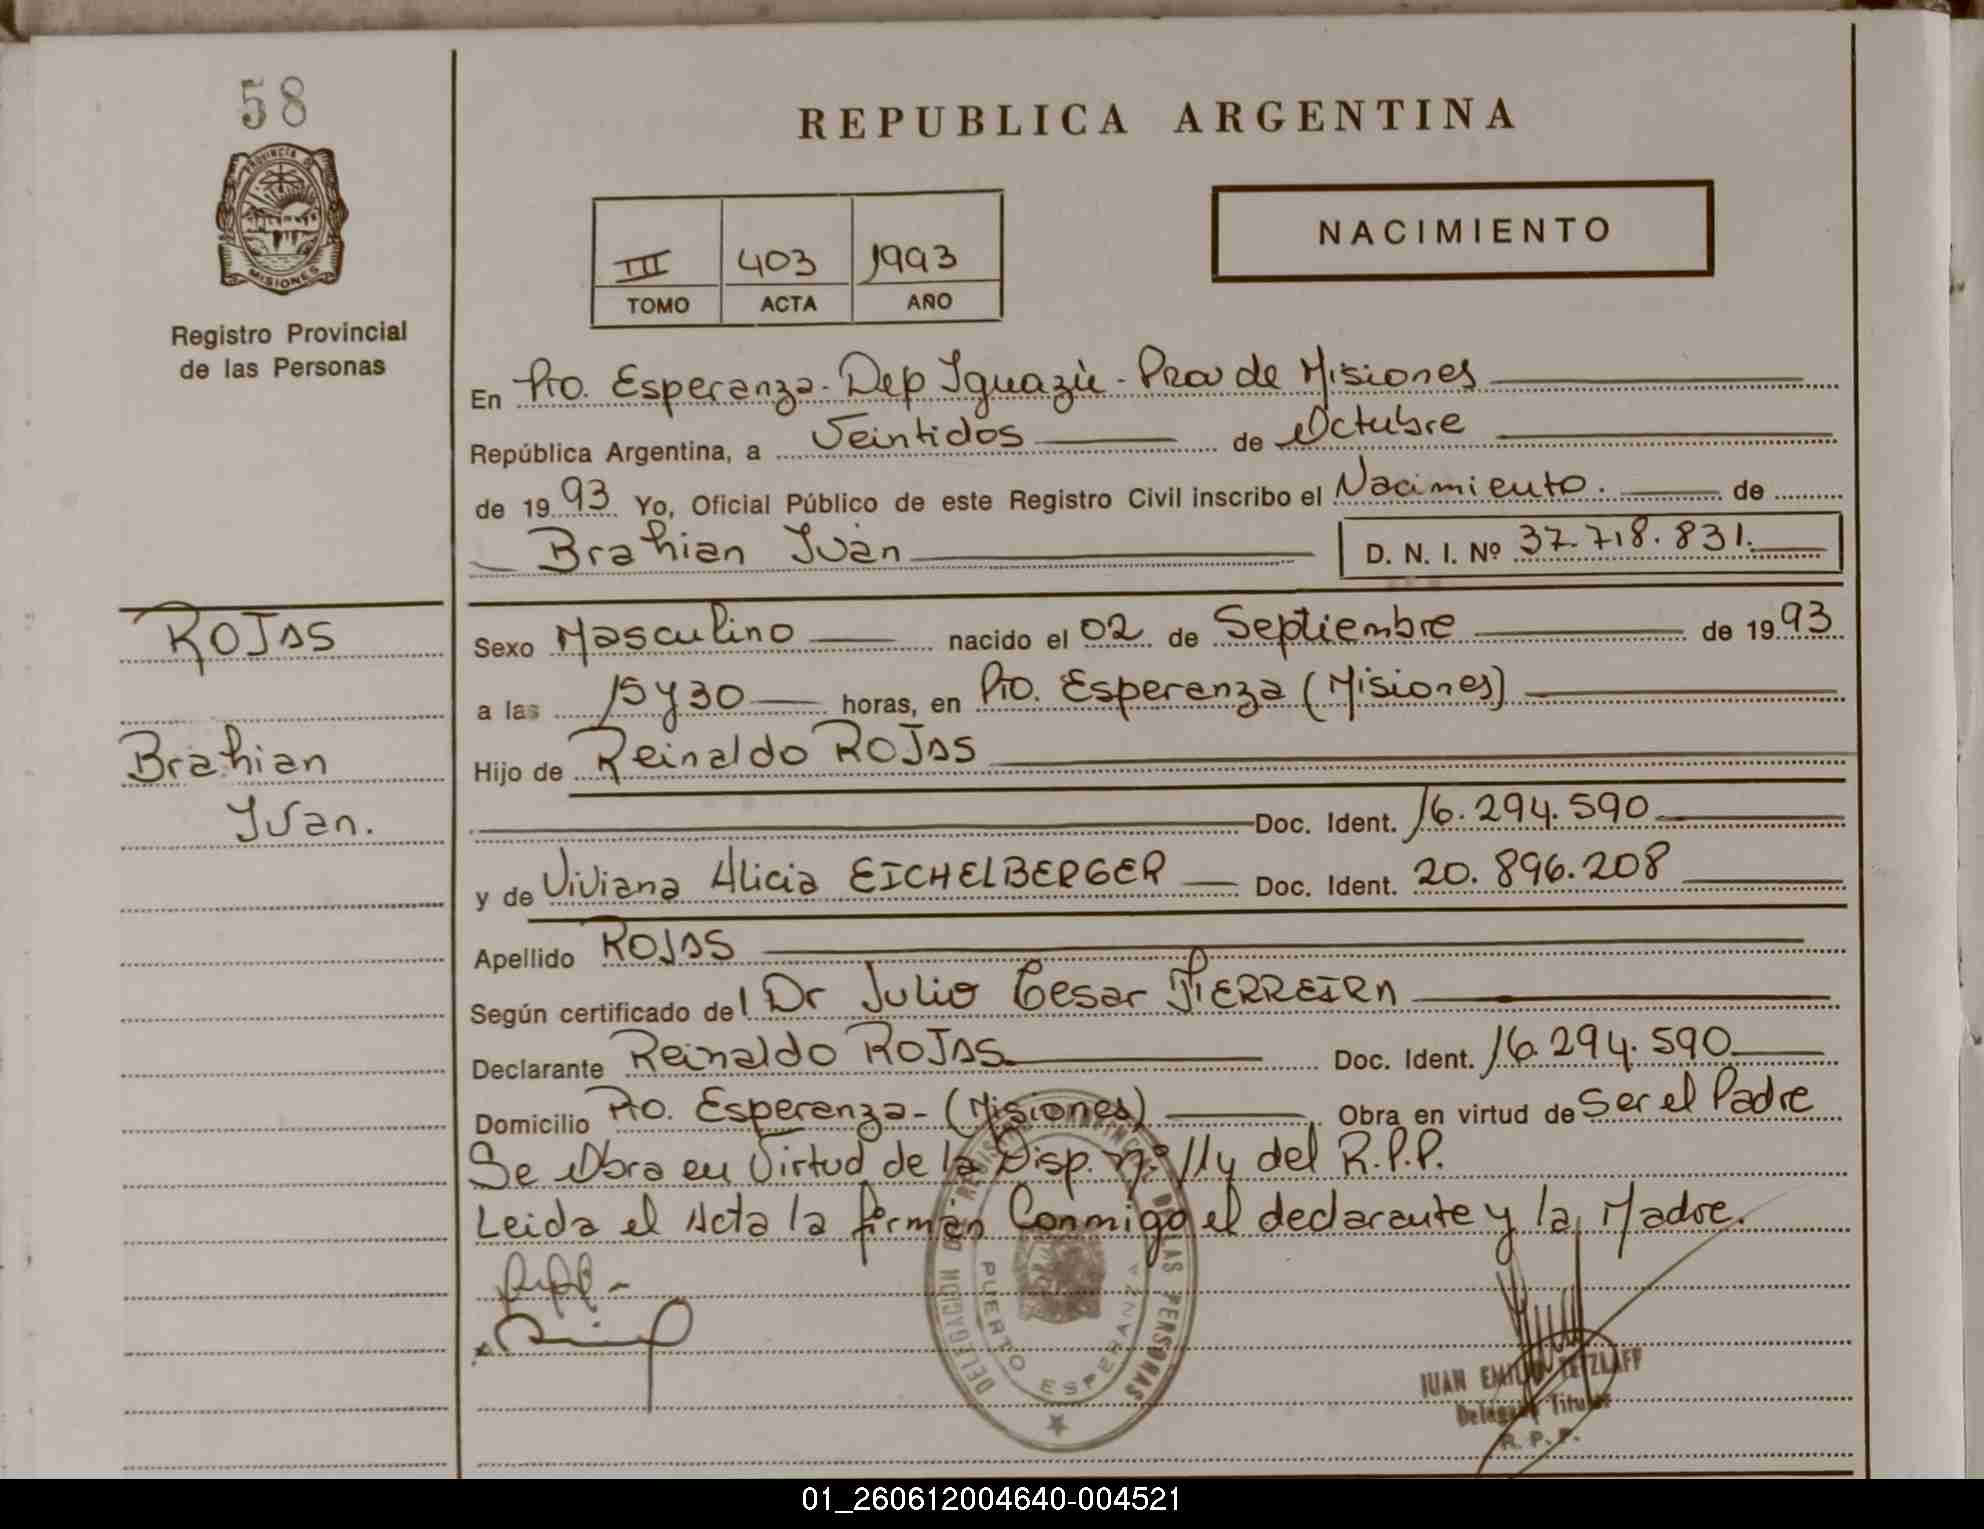 58
PROVINCIA DE
MISIONES
Registro Provincial
de las Personas
REPUBLICA ARGENTINA
III 403 1993
TOMO ACTA AÑO
NACIMIENTO
En Pto. Esperanza - Dep Iguazú - Prov de Misiones
República Argentina, a Veintidos de Octubre
de 1993 Yo, Oficial Público de este Registro Civil inscribo el Nacimiento. de
Brahian Iván D. N. I. Nº 37.718.831.
ROJAS
Brahian
Ivan.
Sexo Masculino nacido el 02 de Septiembre de 1993
a las 15 y 30 horas, en Pto. Esperanza (Misiones)
Hijo de Reinaldo ROJAS
Doc. Ident. 16.294.590
y de Viviana Alicia EICHELBERGER Doc. Ident. 20.896.208
Apellido ROJAS
Según certificado del Dr Julio Cesar
Declarante Reinaldo ROJAS Doc. Ident. 16.294.590
Domicilio Pto. Esperanza - (Misiones) Obra en virtud de Ser el Padre
Se Obra en Virtud de la Disp. nº 114 del R.P.P.
Leida el Acta la firman Conmigo el declarante y la Madre.
DELEGACION DEL REGISTRO PROVINCIAL DE LAS PERSONAS
PUERTO ESPERANZA
JUAN EMILIO TETZLAFF
Delegado Titular
R. P. P.
01_260612004640-004521